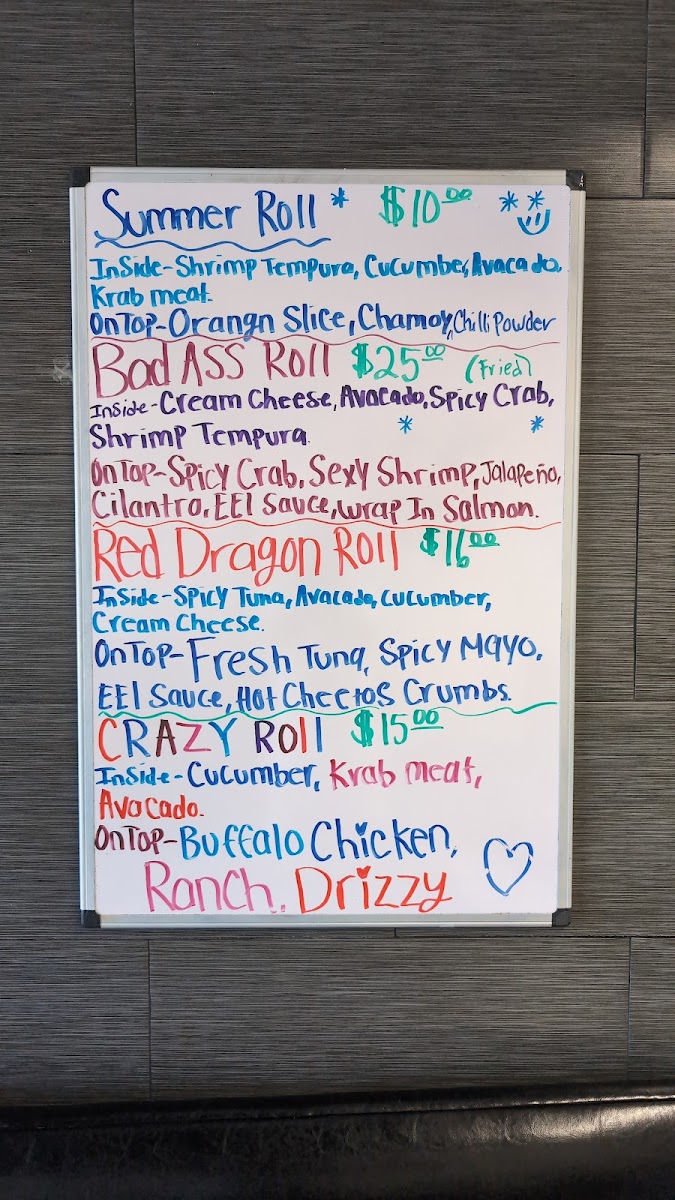 Summer Roll * $10.00
InSide-Shrimp Tempura, Cucumber, Avacado,
Krab meat.
OnTop-Orangn Slice, Chamoy, Chilli Powder
Bad ASS Roll $25.00 (Fried)
Inside-Cream Cheese, Avocado, Spicy Crab,
Shrimp Tempura.
OnTop-Spicy Crab, Sexy Shrimp, Jalapeño,
Cilantro, EEl Sauce, Wrap In Salmon.
Red Dragon Roll $16.00
InSide-Spicy Tuna, Avacado, Cucumber,
Cream Cheese.
OnTop-Fresh Tuna, Spicy Mayo,
EEl Sauce, Hot Cheetos Crumbs.
CRAZY Roll $15.00
InSide-Cucumber, Krab meat,
Avocado.
OnTop-Buffalo Chicken,
Ranch, Drizzy